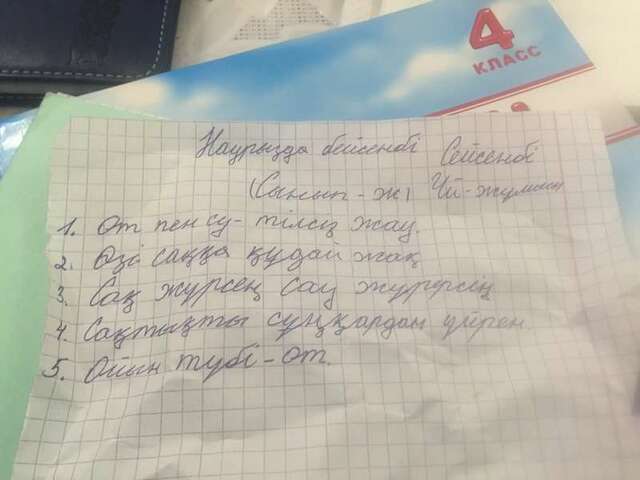 4
КЛАСС
Наурызда бейсенбі Сейсенбі
(Сынып - ж) Үй-жұмысы
1. От пен су - тілсіз жау.
2. Өзі саққа құдай жақ
3. Сақ жүрсең сау жүрерсің
4. Сақтықты сұңқардан үйрен
5. Ойын түбі - от.